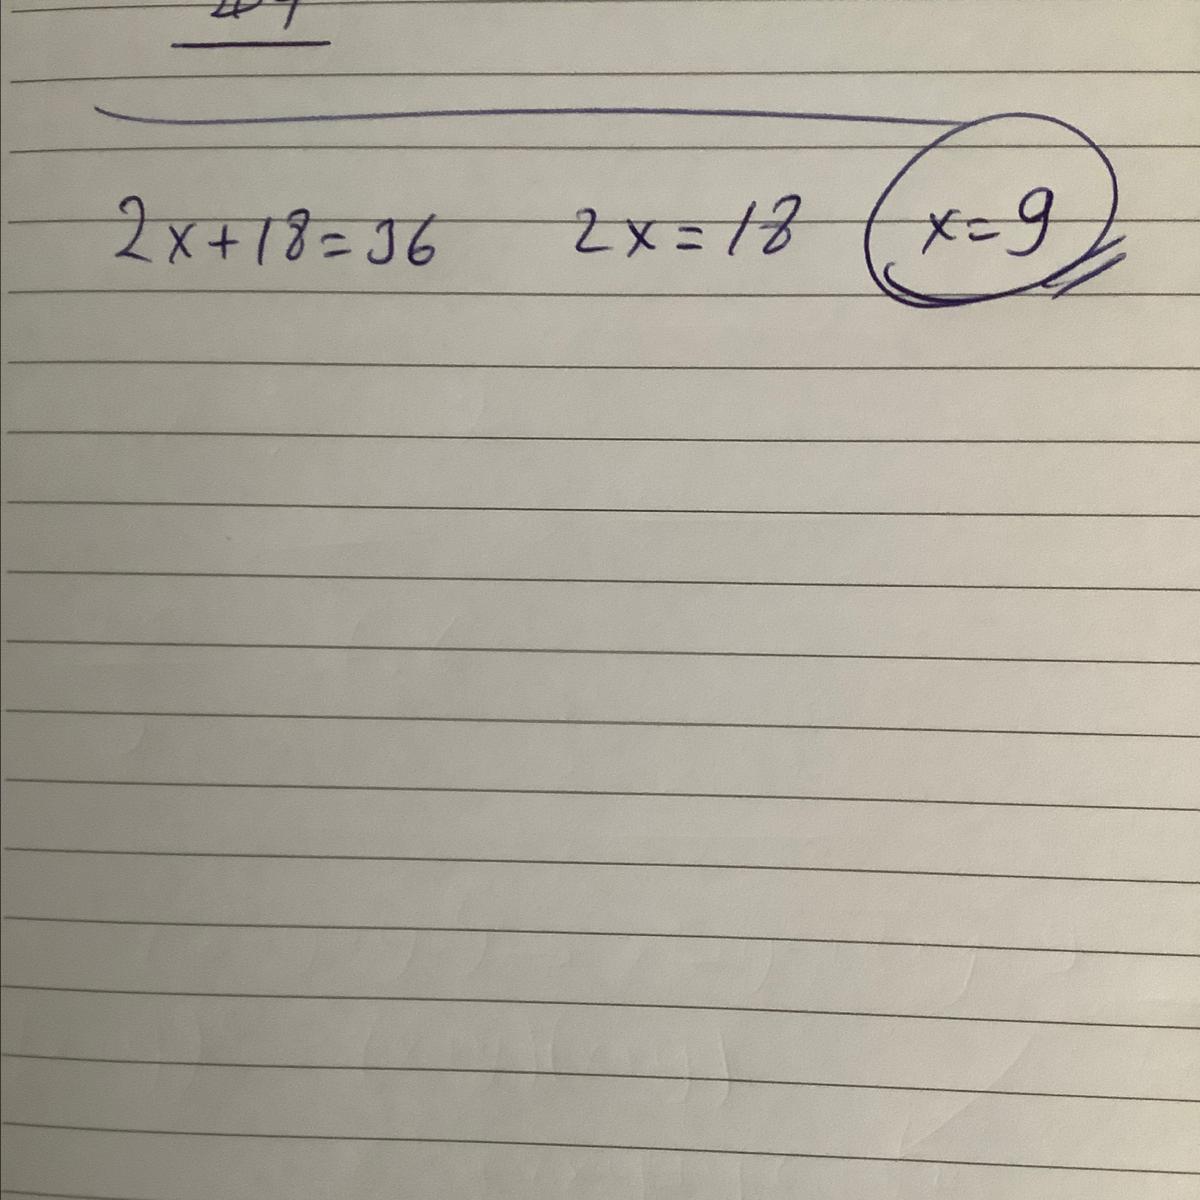 2x+18=36 2x=18 x=9